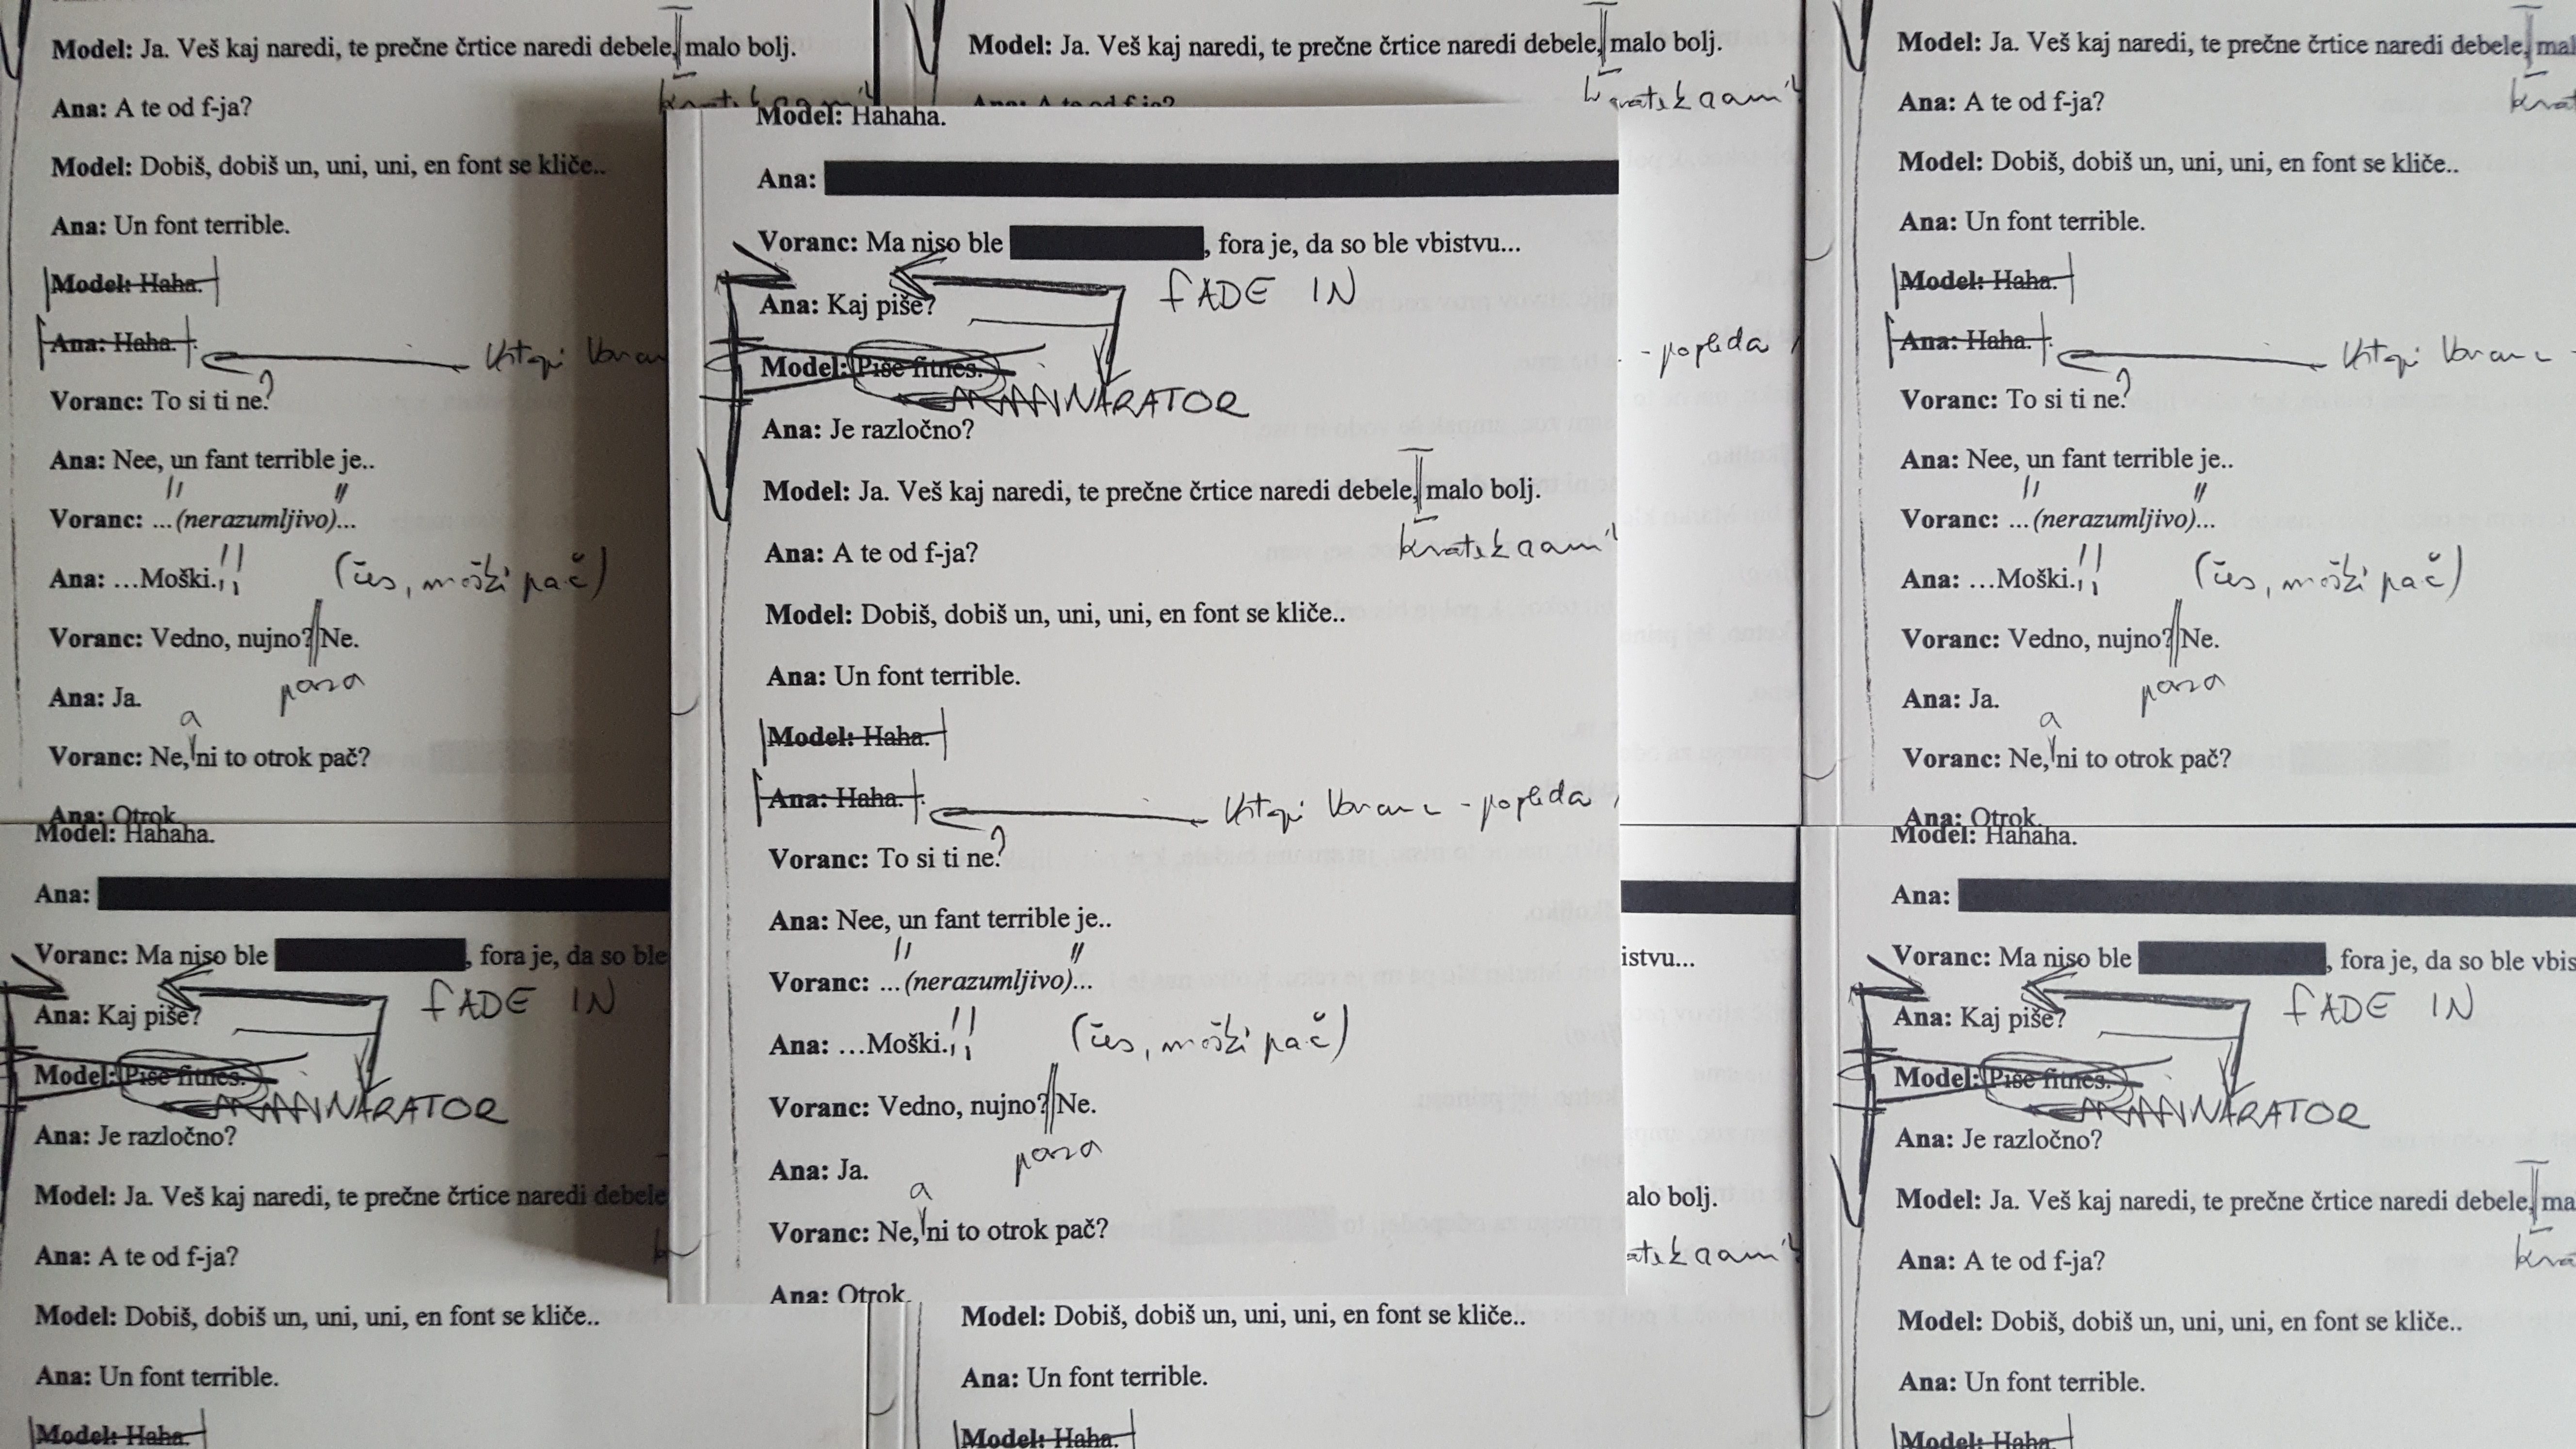 Model: Ja. Veš kaj naredi, te prečne črtice naredi debele, malo bolj.
Ana: A te od f-ja?
Model: Dobiš, dobiš un, uni, uni, en font se kliče..
Ana: Un font terrible.
Model: Haha.
Ana: Haha.
Voranc: To si ti ne?
Ana: Nee, un fant terrible je..
Voranc: ...(nerazumljivo)...
Ana: ...Moški.,
(čes, moški pač)
Voranc: Vedno, nujno? Ne.
Ana: Ja.
a
Voranc: Ne, ni to otrok pač?
Ana: Otrok.
Model: Ja. Veš kaj naredi, te prečne črtice naredi debele, malo bolj.
Model: Ja. Veš kaj naredi, te prečne črtice naredi debele, mal
Ana: A te od f-ja?
Model: Dobiš, dobiš un, uni, uni, en font se kliče..
Ana: Un font terrible.
Model: Haha.
Ana: Haha.
Voranc: To si ti ne?
Ana: Nee, un fant terrible je..
Voranc: ...(nerazumljivo)...
Ana: ...Moški.,
(čes, moški pač)
Voranc: Vedno, nujno? Ne.
Ana: Ja.
a
Voranc: Ne, ni to otrok pač?
Ana: Otrok.
Model: Hahaha.
Ana:
Voranc: Ma niso ble , fora je, da so ble vbistvu...
FADE IN
Ana: Kaj piše?
Model: Piše fitnes.
NARATOR
Ana: Je razločno?
Model: Ja. Veš kaj naredi, te prečne črtice naredi debele, malo bolj.
Ana: A te od f-ja?
Model: Dobiš, dobiš un, uni, uni, en font se kliče..
Ana: Un font terrible.
Model: Haha.
Ana: Haha.
Vstopi Voranc - pogleda
Voranc: To si ti ne?
Ana: Nee, un fant terrible je..
Voranc: ...(nerazumljivo)...
Ana: ...Moški.,
(čes, moški pač)
Voranc: Vedno, nujno? Ne.
Ana: Ja.
a
Voranc: Ne, ni to otrok pač?
Ana: Otrok.
Model: Hahaha.
Ana:
Voranc: Ma niso ble , fora je, da so ble
FADE IN
Ana: Kaj piše?
Model: Piše fitnes.
NARATOR
Ana: Je razločno?
Model: Ja. Veš kaj naredi, te prečne črtice naredi debele
Ana: A te od f-ja?
Model: Dobiš, dobiš un, uni, uni, en font se kliče..
Ana: Un font terrible.
Model: Haha.
istvu...
alo bolj.
Model: Dobiš, dobiš un, uni, uni, en font se kliče..
Ana: Un font terrible.
Model: Haha.
Model: Hahaha.
Ana:
Voranc: Ma niso ble , fora je, da so ble vbis
FADE IN
Ana: Kaj piše?
Model: Piše fitnes.
NARATOR
Ana: Je razločno?
Model: Ja. Veš kaj naredi, te prečne črtice naredi debele, ma
Ana: A te od f-ja?
Model: Dobiš, dobiš un, uni, uni, en font se kliče..
Ana: Un font terrible.
Model: Haha.